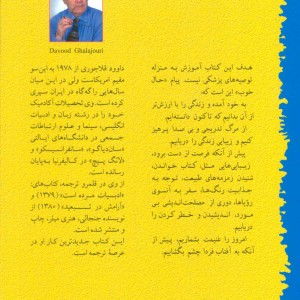 Davood Ghalajouri
هدف این کتاب آموزش به منزله
توصیه‌های پزشکی نیست. پیام «حال
خوب» این است:
به خود آمده و زندگی را با ارزش‌تر
از آن بدانیم که تاکنون دانسته‌ایم.
از مرگ تدریجی و بی صدا پرهیز
کنیم و زیبایی زندگی را دریابیم.
پیش از آنکه فرصت از دست برود،
زیبایی‌هایی مثل، کتاب خواندن،
شنیدن زمزمه‌های طبیعت، توجه به
جذابیت رنگ‌ها، سفر به آسوی
رؤیاها، دوری از مصلحت‌اندیشی بی
مورد، اندیشیدن و خطر کردن را
دریابیم.
امروز را غنیمت بشماریم، پیش از
آنکه به آفتاب فردا چشم بگشاییم.
داوود قلاجوری از ۱۹۷۸ به این‌سو
مقیم امریکاست ولی در این میان
سال‌هایی را گه‌گاه در ایران سپری
کرده است. وی تحصیلات آکادمیک
خود را در رشته زبان و ادبیات
انگلیسی، سینما و علوم ارتباطات
جمعی در دانشگاه‌های ایالتی
«سان‌دیاگو»، «سانفرانسیسکو» و
«لانگ بیچ» در کالیفرنیا به‌پایان
رسانده است.
از وی در قلمرو ترجمه، کتاب‌های:
«ادبیات مرده است» (۱۳۷۹) و
«آرامش در تبعید» (۱۳۸۰) از
نویسنده جنجالی، هنری میلر، چاپ
و منتشر شده است.
این کتاب جدیدترین کار او در
عرصهٔ ترجمه است.